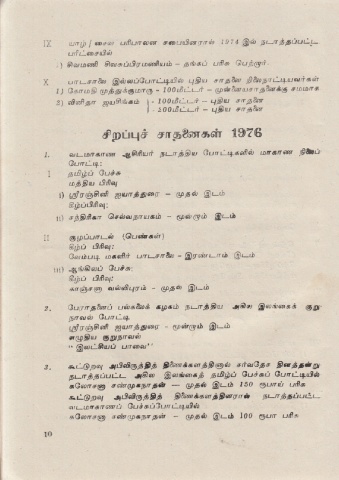 IX யாழ்/சைவ பரிபாலன சபையினரால் 1974 இல் நடாத்தப்பட்ட
பரீட்சையில்
1) சிவமணி சிவசுப்பிரமணியம் – தங்கப் பரிசு பெற்றார்.
X பாடசாலை இல்லப்போட்டியில் புதிய சாதனை நிலைநாட்டியவர்கள்
1) கோமதி முத்துக்குமாரு – 100மீட்டர் – முன்னையசாதனைக்கு சமமாக
2) வினிதா ஐயரிங்கம் – 100மீட்டர் – புதிய சாதனை
– 200மீட்டர் – புதிய சாதனை
சிறப்புச் சாதனைகள் 1976
1. வடமாகாண ஆசிரியர் நடாத்திய போட்டிகளில் மாகாண நிலைப்
போட்டி:
I தமிழ்ப் பேச்சு
மத்திய பிரிவு
i) ஸ்ரீரஞ்சினி ஐயாத்துரை – முதல் இடம்
கீழ்ப்பிரிவு:
ii) சந்திரிகா செல்வநாயகம் – மூன்றாம் இடம்
II குழுப்பாடல் (பெண்கள்)
கீழ்ப் பிரிவு:
வேம்படி மகளிர் பாடசாலை – இரண்டாம் இடம்
iii) ஆங்கிலப் பேச்சு:
கீழ்ப் பிரிவு:
காஞ்சனா வல்லிபுரம் – முதல் இடம்
2. பேராதனைப் பல்கலைக் கழகம் நடாத்திய அகில இலங்கைக் குறு
நாவல் போட்டி
ஸ்ரீரஞ்சினி ஐயாத்துரை – மூன்றாம் இடம்
எழுதிய குறுநாவல்
"இலட்சியப் பாவை"
3. கூட்டுறவு அபிவிருத்தித் திணைக்களத்தினால் சர்வதேச தினத்தன்று
நடாத்தப்பட்ட அகில இலங்கைத் தமிழ்ப் பேச்சுப் போட்டியில்
சுலோசனா சண்முகநாதன் — முதல் இடம் 150 ரூபாய் பரிசு
கூட்டுறவு அபிவிருத்தித் திணைக்களத்தினரால் நடாத்தப்பட்ட
வடமாகாணப் பேச்சுப்போட்டியில்
சுலோசனா சண்முகநாதன் – முதல் இடம் 100 ரூபா பரிசு
10